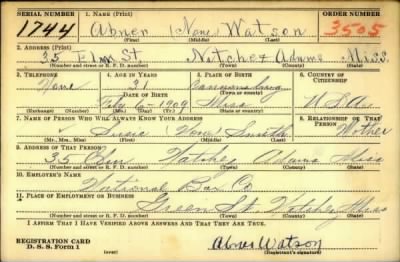 SERIAL NUMBER 1. NAME (Print) ORDER NUMBER
1744 Abner (None) Watson 3505
(First) (Middle) (Last)
2. ADDRESS (Print)
35 Elm St Natchez Adams Miss.
(Number and street or R. F. D. number) (Town) (County) (State)
3. TELEPHONE 4. AGE IN YEARS 5. PLACE OF BIRTH 6. COUNTRY OF CITIZENSHIP
None 31
DATE OF BIRTH (Town or county)
Feby 6-1909 Miss U.S.A.
(Exchange) (Number) (Mo.) (Day) (Yr.) (State or country)
7. NAME OF PERSON WHO WILL ALWAYS KNOW YOUR ADDRESS 8. RELATIONSHIP OF THAT PERSON
Susie (None) Smith Mother
(Mr., Mrs., Miss) (First) (Middle) (Last)
9. ADDRESS OF THAT PERSON
35 Elm Natchez Adams Miss
(Number and street or R. F. D. number) (Town) (County) (State)
10. EMPLOYER'S NAME
National Box Co
11. PLACE OF EMPLOYMENT OR BUSINESS
Green St. Natchez Miss
(Number and street or R. F. D. number) (Town) (County) (State)
I AFFIRM THAT I HAVE VERIFIED ABOVE ANSWERS AND THAT THEY ARE TRUE.
REGISTRATION CARD
D. S. S. Form 1
Abner Watson
(Registrant's signature)